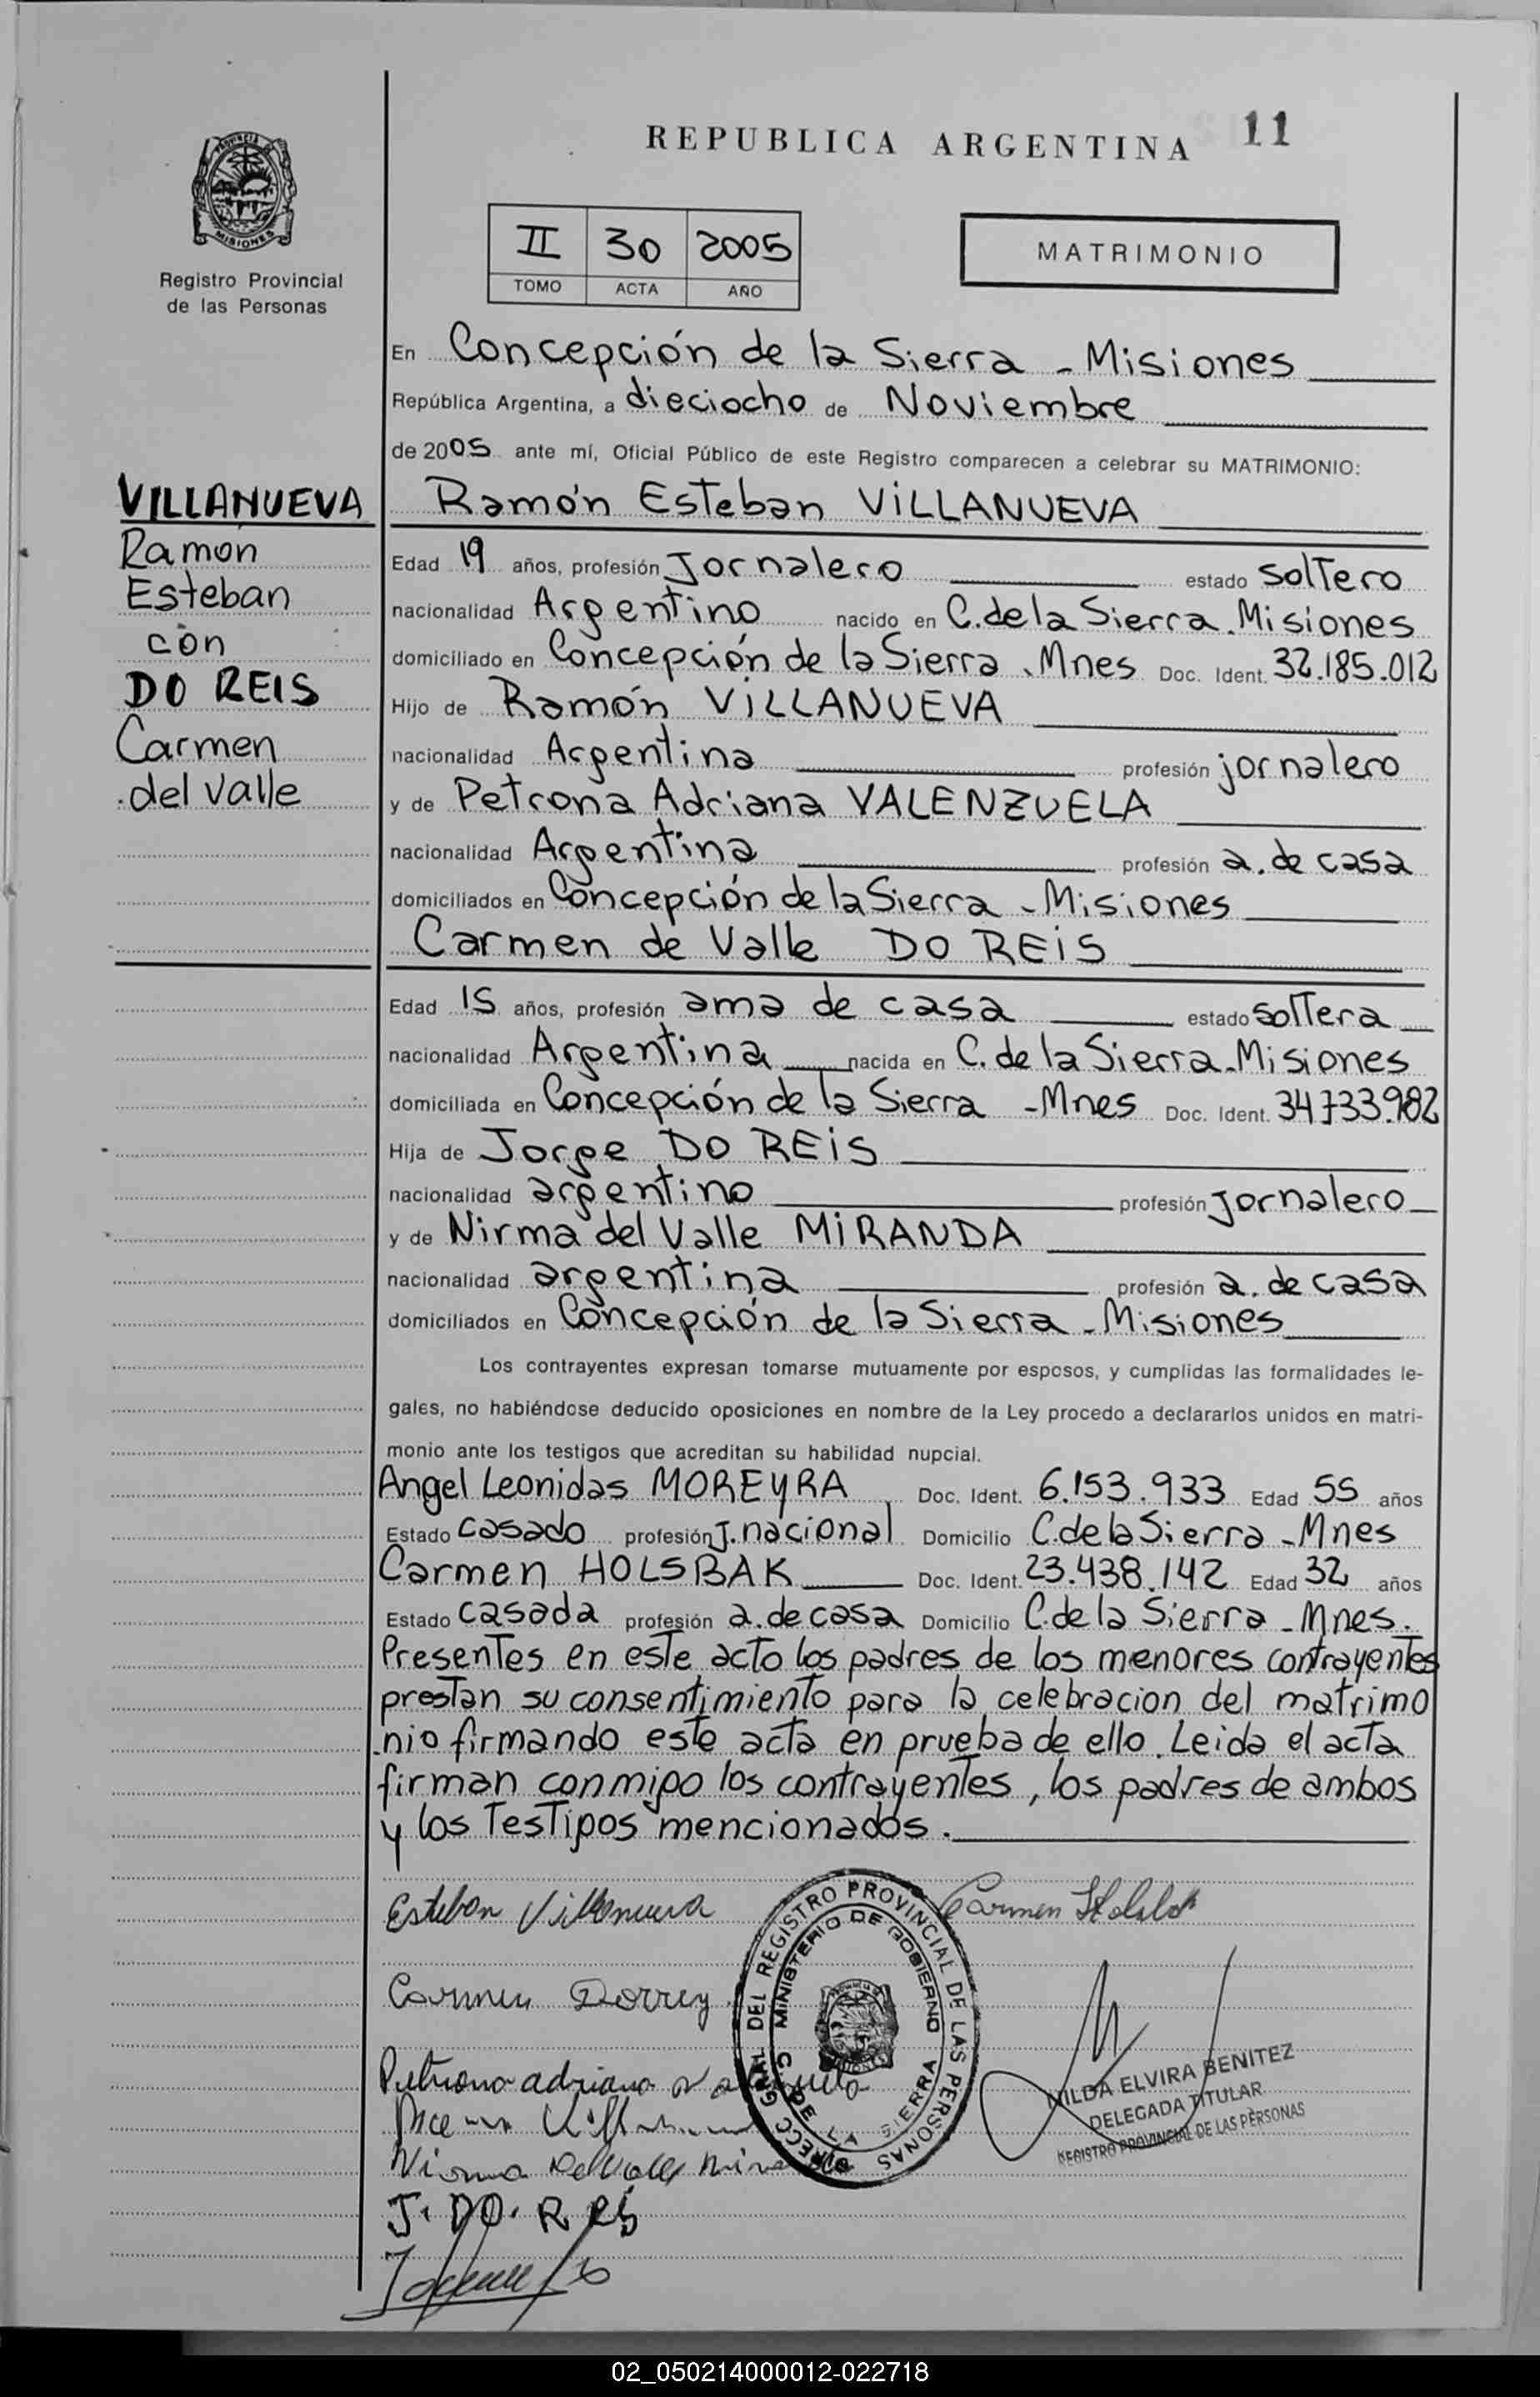 REPUBLICA ARGENTINA 11
PROVINCIA DE
MISIONES
Registro Provincial
de las Personas
II 30 2005
TOMO ACTA AÑO
MATRIMONIO
En Concepción de la Sierra - Misiones
República Argentina, a dieciocho de Noviembre
de 2005 ante mí, Oficial Público de este Registro comparecen a celebrar su MATRIMONIO:
VILLANUEVA
Ramón
Esteban
con
DO REIS
Carmen
del Valle
Ramón Esteban VILLANUEVA
Edad 19 años, profesión Jornalero estado Soltero
nacionalidad Argentino nacido en C. de la Sierra. Misiones
domiciliado en Concepción de la Sierra. Mnes Doc. Ident. 32.185.012
Hijo de Ramón VILLANUEVA
nacionalidad Argentina profesión jornalero
y de Petrona Adriana VALENZUELA
nacionalidad Argentina profesión a. de casa
domiciliados en Concepción de la Sierra - Misiones
Carmen de Valle DO REIS
Edad 15 años, profesión ama de casa estado Soltera
nacionalidad Argentina nacida en C. de la Sierra - Misiones
domiciliada en Concepción de la Sierra - Mnes Doc. Ident. 34733.982
Hija de Jorge DO REIS
nacionalidad argentino profesión Jornalero
y de Nirma del Valle MIRANDA
nacionalidad argentina profesión a. de casa
domiciliados en Concepción de la Sierra - Misiones
Los contrayentes expresan tomarse mutuamente por esposos, y cumplidas las formalidades le-
gales, no habiéndose deducido oposiciones en nombre de la Ley procedo a declararlos unidos en matri-
monio ante los testigos que acreditan su habilidad nupcial.
Angel Leonidas MOREYRA Doc. Ident. 6.153.933 Edad 55 años
Estado casado profesión J. nacional Domicilio C. de la Sierra - Mnes
Carmen HOLSBAK Doc. Ident. 23.438.142 Edad 32 años
Estado casada profesión a. de casa Domicilio C. de la Sierra - Mnes.
Presentes en este acto los padres de los menores contrayentes
prestan su consentimiento para la celebracion del matrimo
nio firmando este acta en prueba de ello. Leida el acta
firman conmigo los contrayentes, los padres de ambos
y los Testigos mencionados.
Esteban Villanueva
Carmen
Carmen
DIRECC. GRAL. DEL REGISTRO PROVINCIAL DE LAS PERSONAS
MINISTERIO DE GOBIERNO
C. DE LA SIERRA
Petrona adriana Valenzuela
Nirma del Valle Miranda
J. DO. Reis
NILDA ELVIRA BENITEZ
DELEGADA TITULAR
REGISTRO PROVINCIAL DE LAS PERSONAS
02_050214000012-022718